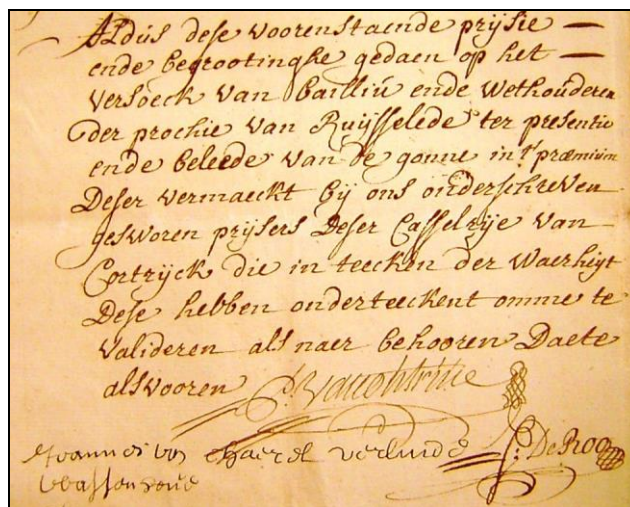 Aldus dese voorenstaende prijsie —
ende begrootinghe gedaen op het —
versoeck van Bailliú ende Wethouderen
der prochie van Ruijsselede ter presentie
ende beleede van de gonne in't præmium
Deser vermaeckt bij ons onderschreven
gesworen prijsers Deser Casselrije van
Cortrijck die in teecken der Waerheijt
Dese hebben onderteeckent omme te
valideren als naer behooren Daete
alsvooren
De Roo